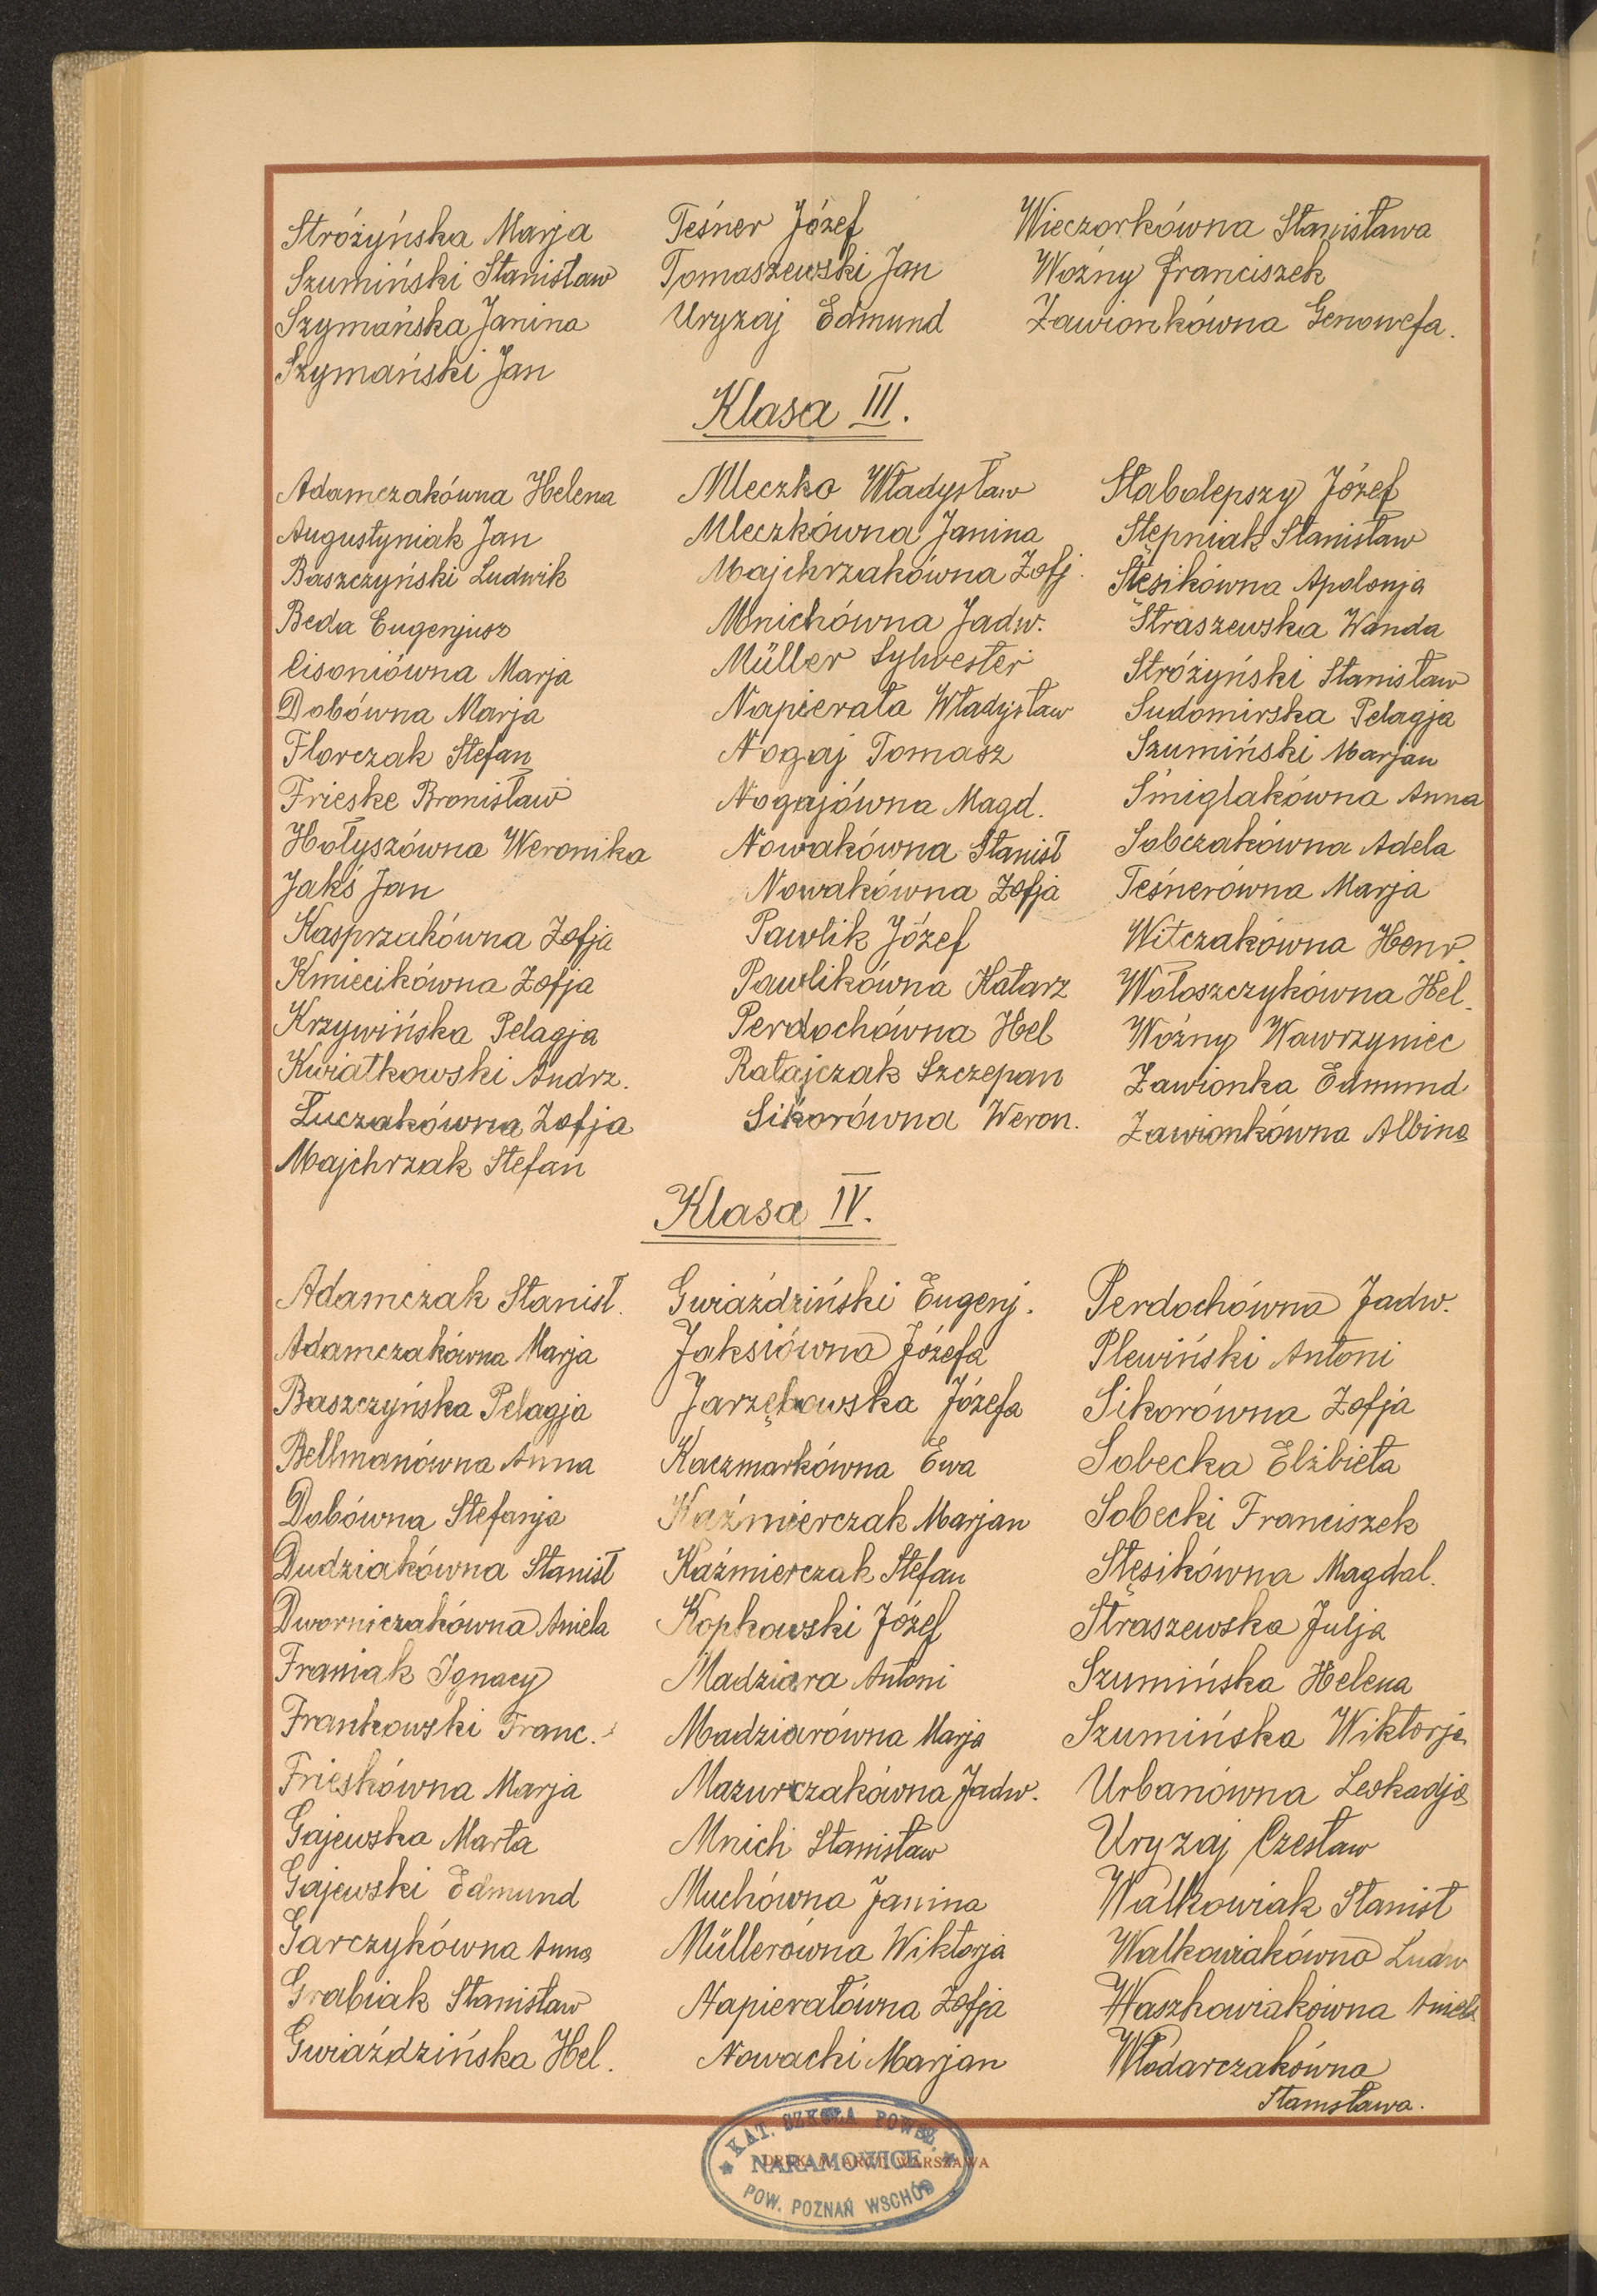 Stróżyńska Marja
Szumiński Stanisław
Szymańska Janina
Szymański Jan
Teśner Józef
Tomaszewski Jan
Uryzaj Edmund
Wieczorkówna Stanisława
Woźny Franciszek
Zawionkówna Genowefa.
Klasa III.
Adamczakówna Helena
Augustyniak Jan
Baszczyński Ludwik
Beda Eugenjusz
Cisoniówna Marja
Dobówna Marja
Florczak Stefan
Frieske Bronisław
Hołyszówna Weronika
Jakś Jan
Kasprzakówna Zofja
Kmiecikówna Zofja
Krzywińska Pelagja
Kwiatkowski Andrz.
Łuczakówna Zofja
Majchrzak Stefan
Mleczko Władysław
Mleczkówna Janina
Majchrzakówna Zofj.
Mnichówna Jadw.
Müller Sylwester
Napierała Władysław
Nogaj Tomasz
Nogajówna Magd.
Nowakówna Stanisł
Nowakówna Zofja
Pawlik Józef
Pawlikówna Katarz
Perdochówna Hel
Ratajczak Szczepan
Sikorówna Weron.
Słabolepszy Józef
Stępniak Stanisław
Stęsikówna Apolonja
Straszewska Wanda
Stróżyński Stanisław
Sudomirska Pelagja
Szumiński Marjan
Śmiglakówna Anna
Sobczakówna Adela
Teśnerówna Marja
Witczakówna Henr.
Wołoszczykówna Hel.
Woźny Wawrzyniec
Zawionka Edmund
Zawionkówna Albina
Klasa IV.
Adamczak Stanisł.
Adamczakówna Marja
Baszczyńska Pelagja
Bellmanówna Anna
Dobówna Stefanja
Dudziakówna Stanisł
Dworniczakówna Aniela
Franiak Ignacy
Frankowski Franc.
Frieskówna Marja
Gajewska Marta
Gajewski Edmund
Garczykówna Anna
Grabiak Stanisław
Gwiaździńska Hel.
Gwiaździński Eugenj.
Jaksiówna Józefa
Jarzębowska Józefa
Kaczmarkówna Ewa
Kaźmierczak Marjan
Kaźmierczak Stefan
Kopkowski Józef
Madziara Antoni
Madziarówna Marja
Mazurczakówna Jadw.
Mnich Stanisław
Muchówna Janina
Müllerówna Wiktorja
Napierałówna Zofja
Nowacki Marjan
Perdochówna Jadw.
Plewiński Antoni
Sikorówna Zofja
Sobecka Elżbieta
Sobecki Franciszek
Stęsikówna Magdal.
Straszewska Julja
Szumińska Helena
Szumińska Wiktorja
Urbanówna Leokadja
Uryzaj Czesław
Walkowiak Stanisł
Walkowiakówna Ludw
Waszkowiakówna Aniela
Włodarczakówna
Stanisława.
KAT. SZKOŁA POWSZ.
NARAMOWICE
POW. POZNAŃ WSCHÓD
WARSZAWA